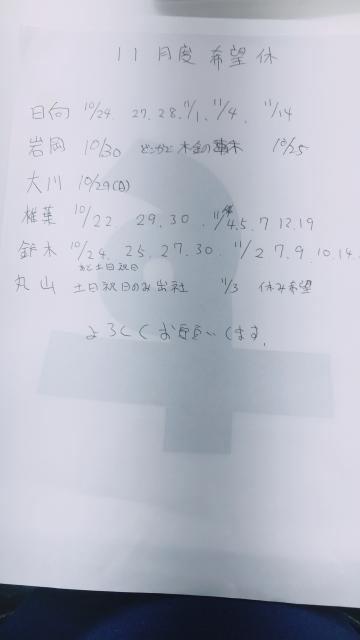 11月度 希望休
日向 10/24. 27. 28. 11/1. 11/4. 11/14
岩岡 10/30 どこかに 木金の 10/25
大川 10/29(日)
椎葉 10/22 29. 30. 11/4. 5. 7 12. 19
鈴木 10/24. 25. 27. 30. 11/2 7. 9. 10. 14.
あと土日祝日
丸山 土日祝日のみ出社 11/3 休み希望
よろしくお願いします.